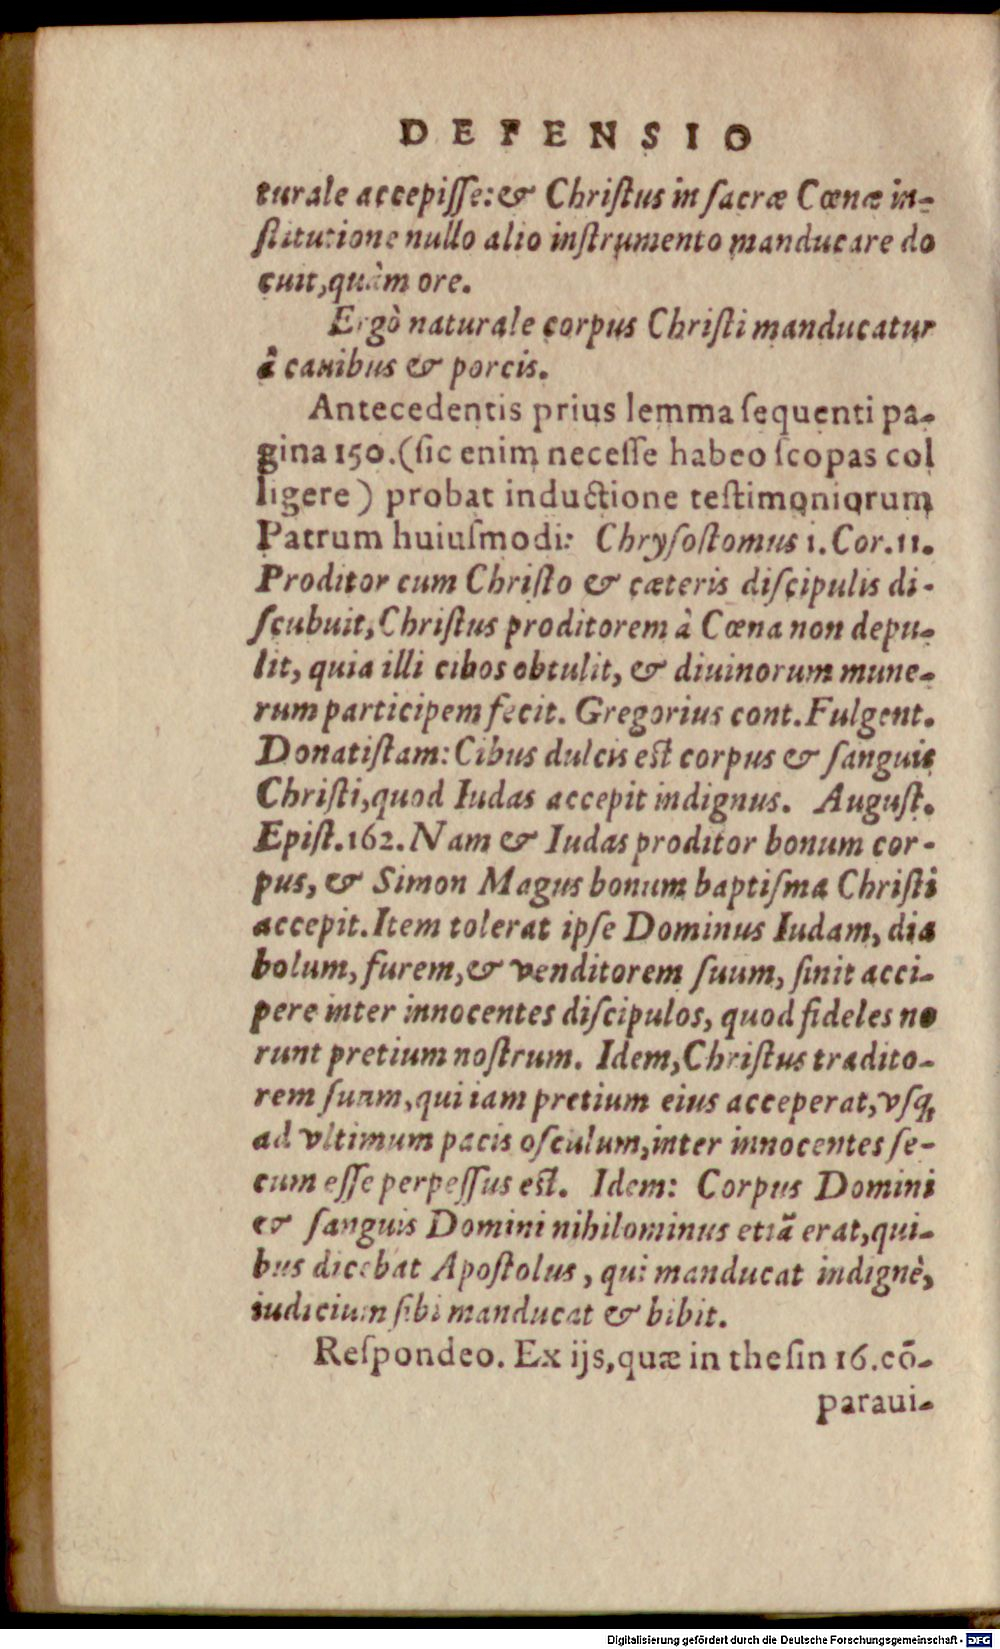 DEFENSIO
turale accepiſſe: & Chriſtus in ſacræ Cœnæ in-
ſtitutione nullo alio inſtrumento manducare do
cuit, quàm ore.
Ergò naturale corpus Chriſti manducatur
à canibus & porcis.
Antecedentis prius lemma ſequenti pa-
gina 150. (ſic enim neceſſe habeo ſcopas col
ligere) probat inductione teſtimoniorum
Patrum huiuſmodi: Chryſoſtomus 1. Cor. 11.
Proditor cum Chriſto & cæteris diſcipulis di-
ſcubuit, Chriſtus proditorem à Cœna non depu-
lit, quia illi cibos obtulit, & diuinorum mune-
rum participem fecit. Gregorius cont. Fulgent.
Donatiſtam: Cibus dulcis eſt corpus & ſanguis
Chriſti, quod Iudas accepit indignus. Auguſt.
Epiſt. 162. Nam & Iudas proditor bonum cor-
pus, & Simon Magus bonum baptiſma Chriſti
accepit. Item tolerat ipſe Dominus Iudam, dia
bolum, furem, & venditorem ſuum, ſinit acci-
pere inter innocentes diſcipulos, quod fideles no
runt pretium noſtrum. Idem, Chriſtus tradito-
rem ſuum, qui iam pretium eius acceperat, vſq;
ad vltimum pacis oſculum, inter innocentes ſe-
cum eſſe perpeſſus eſt. Idem: Corpus Domini
& ſanguis Domini nihilominus etiã erat, qui-
bus dicebat Apoſtolus, qui manducat indignè,
iudicium ſibi manducat & bibit.
Reſpondeo. Ex ijs, quæ in theſin 16. cō-
paraui-
Digitalisierung gefördert durch die Deutsche Forschungsgemeinschaft - DFG